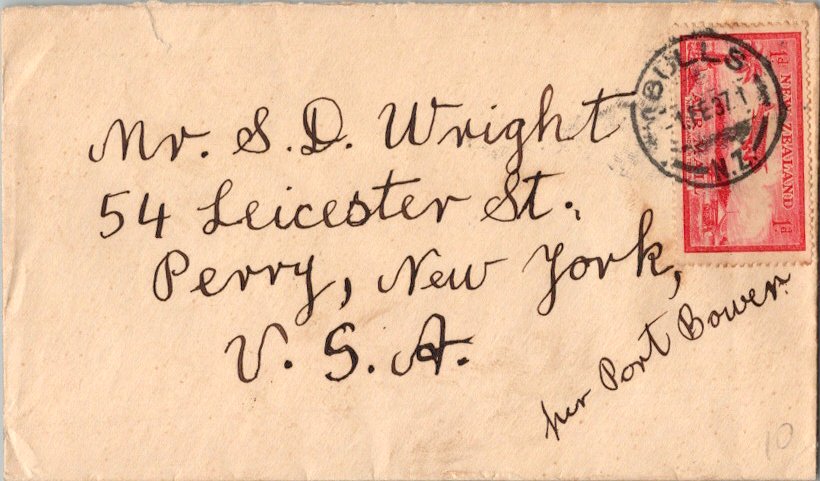 Mr. S. D. Wright
54 Leicester St.
Perry, New York,
U. S. A.
per Port Bowen.
BULLS
FE 37.1
N.Z.
NEW ZEALAND
1d
1d
AIR MAIL
10